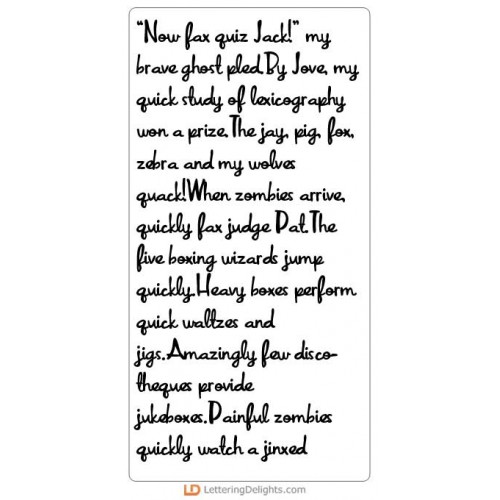 “Now fax quiz Jack!” my
brave ghost pled.By Jove, my
quick study of lexicography
won a prize.The jay, pig, fox,
zebra and my wolves
quack!When zombies arrive,
quickly fax judge Pat.The
five boxing wizards jump
quickly.Heavy boxes perform
quick waltzes and
jigs.Amazingly few disco-
theques provide
jukeboxes.Painful zombies
quickly watch a jinxed
LD LetteringDelights.com